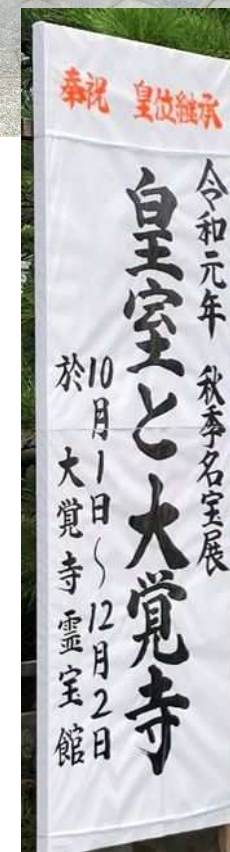 奉祝 皇位継承
令和元年 秋季名宝展
皇室と大覚寺
10月1日～12月2日
於 大覚寺霊宝館